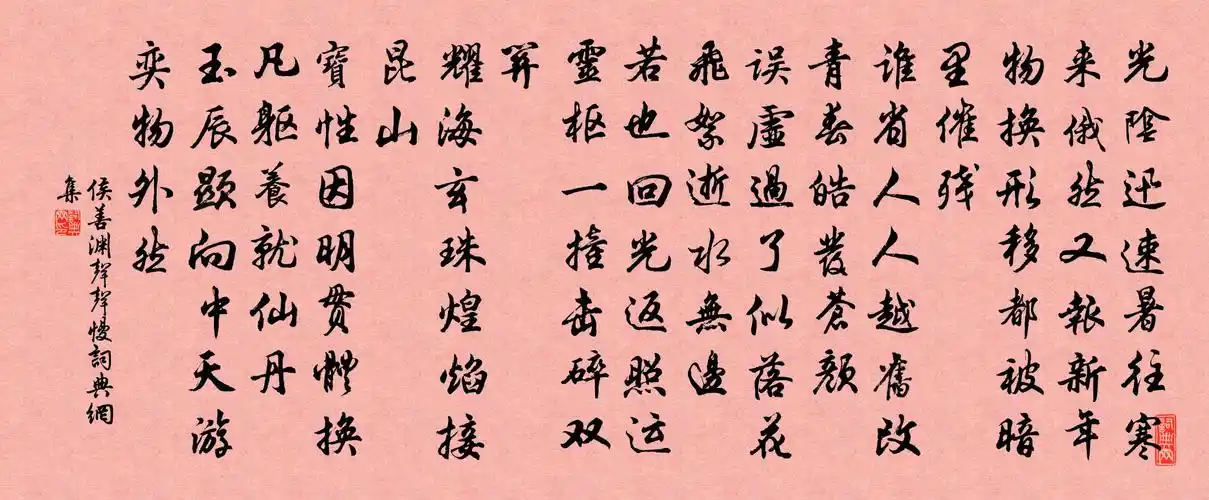 光陰迅速暑往寒
来俄然又報新年
物換形移都被暗
里催残
谁省人人越旧改
青春皓发苍颜
误虚過了似落花
飛絮逝水無邊
若也回光返照运
靈枢一撞击碎双
关
耀海玄珠煌焰接
昆山
寶性因明贯體換
凡躯養就仙丹
玉辰顕向中天游
奕物外然
侯善渊聲聲慢詞典網
集